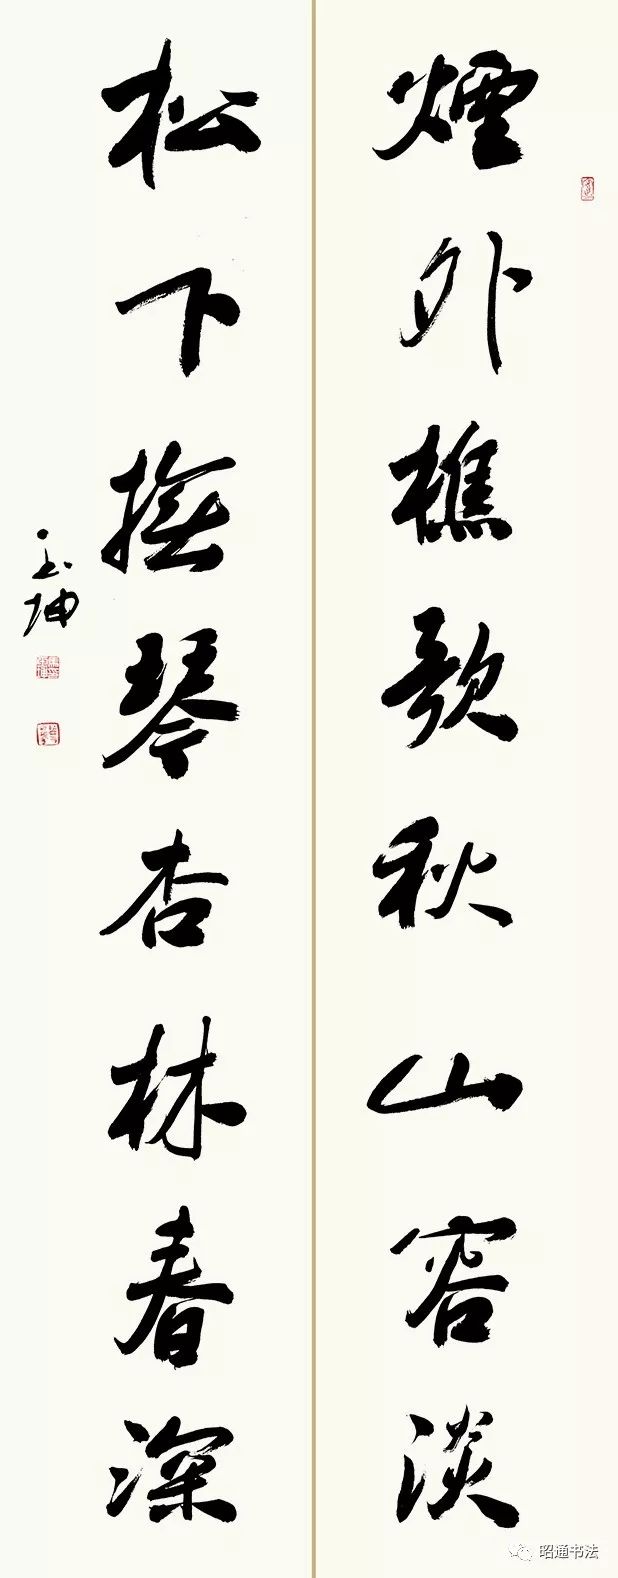 煙外樵歌秋山容淡
松下撫琴杏林春深
玉坤
昭通书法